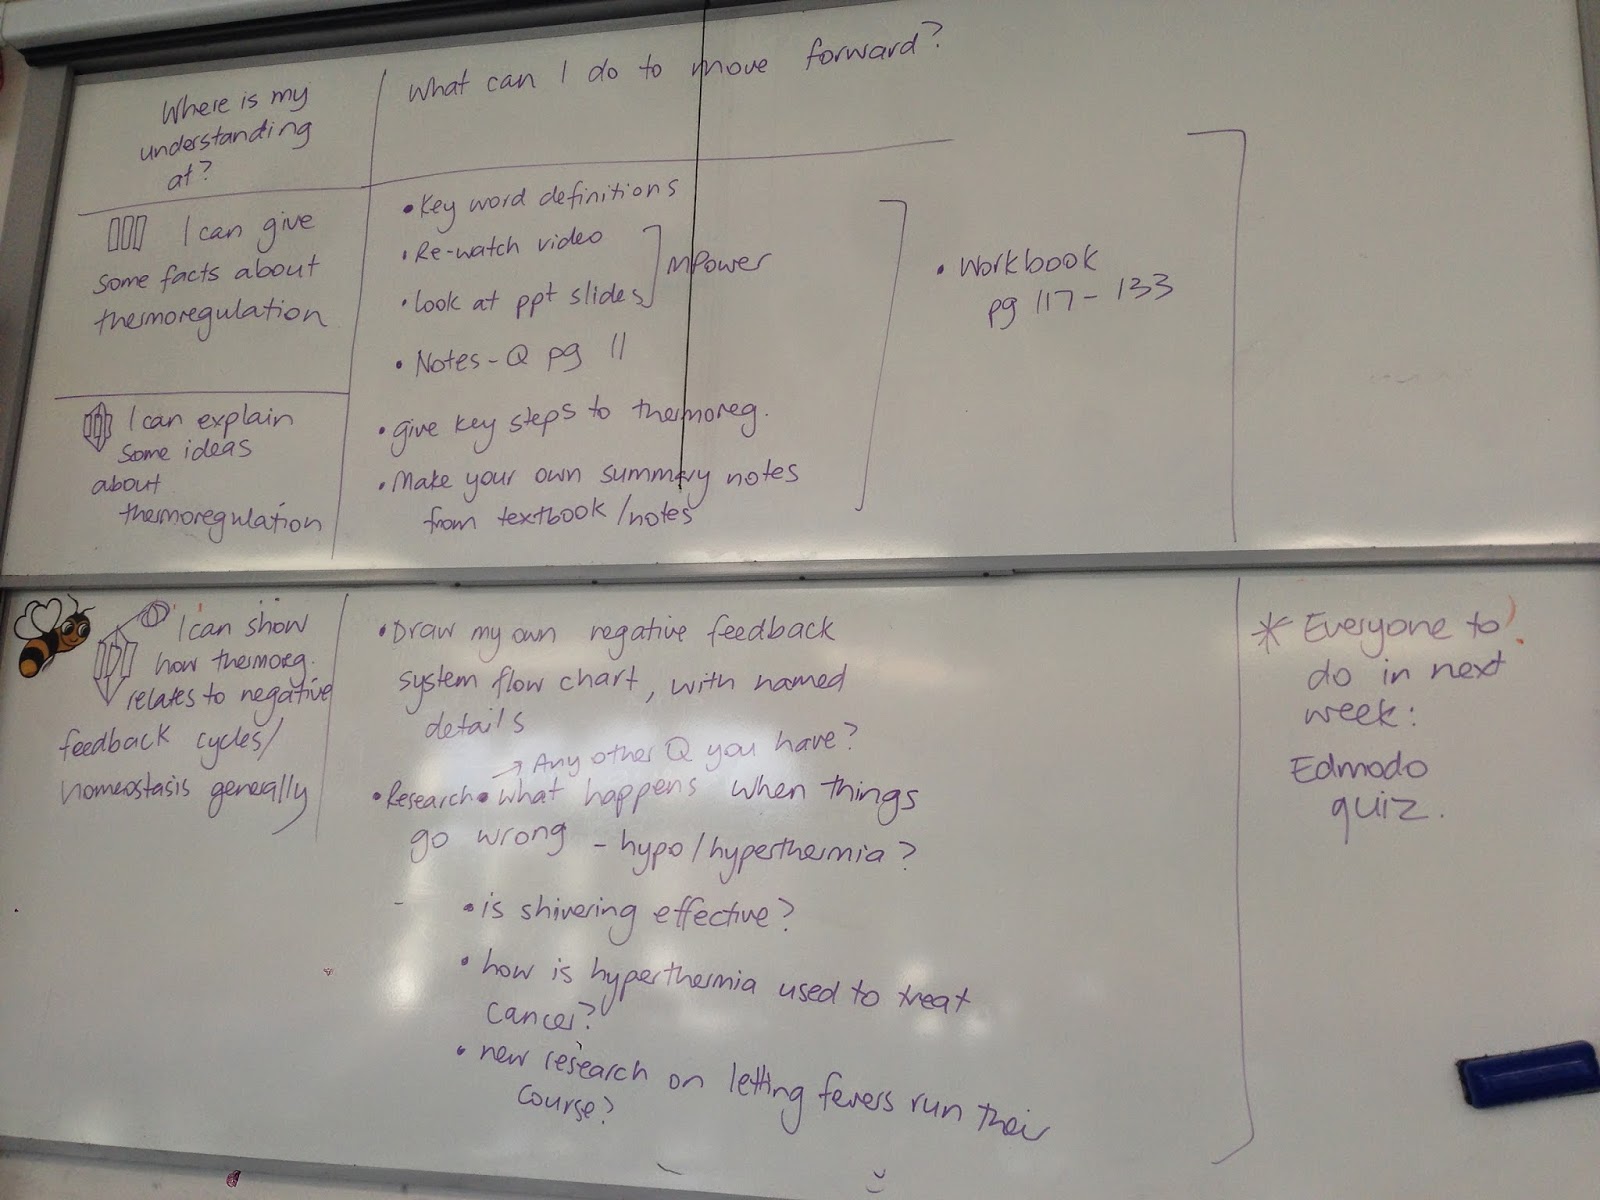 Where is my
understanding
at?
What can I do to move forward?
I can give
some facts about
thermoregulation
• Key word definitions
• Re-watch video
• Look at ppt slides
MPower
• Notes - Q pg 11
I can explain
some ideas
about
thermoregulation
• give key steps to thermoreg.
• Make your own summary notes
from textbook/notes
• Workbook
pg 117 - 133
I can show
how thermoreg.
relates to negative
feedback cycles/
homeostasis generally
• Draw my own negative feedback
system flow chart, with named
details
→ Any other Q you have?
• Research • what happens when things
go wrong - hypo/hyperthermia?
• is shivering effective?
• how is hyperthermia used to treat
cancer?
• new research on letting fevers run their
course?
* Everyone to
do in next
week:
Edmodo
quiz.